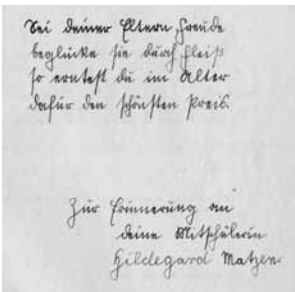 Sei deiner Eltern Freude
beglücke sie durch Fleiß
so erntest du im Alter
dafür den schönsten Preis.
Zur Erinnerung an
deine Mitschülerin
Hildegard Matzen